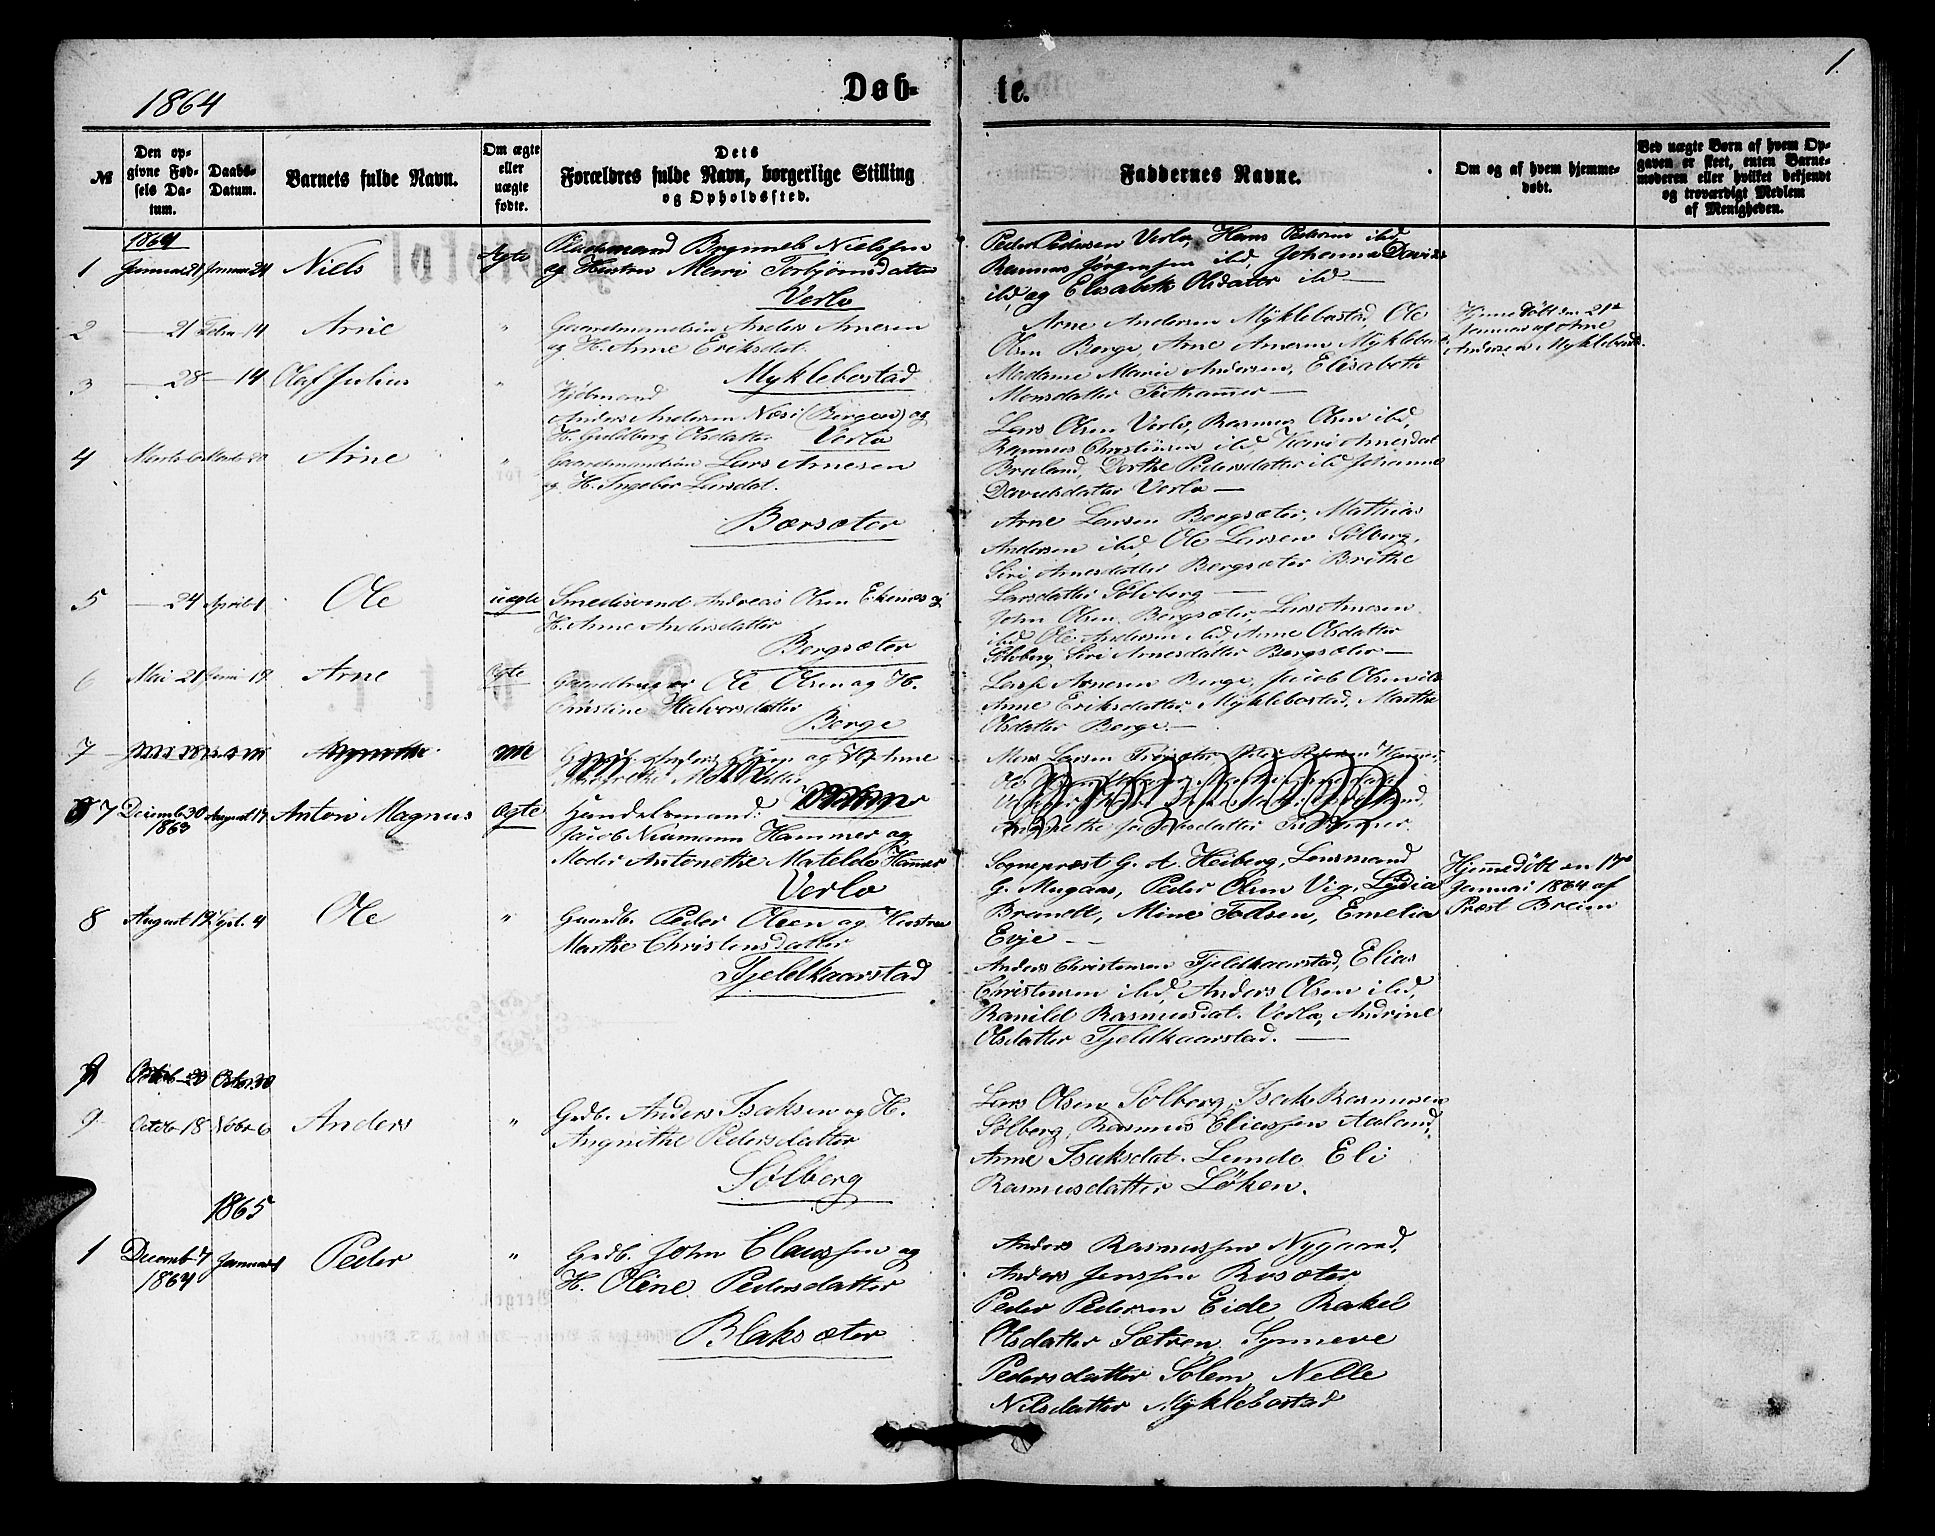 1864
Døb-
te.
1.
№
Den op-
givne Fød-
sels Da-
tum.
Daabs-
Datum.
Barnets fulde Navn.
Om ægte
eller
uægte
fødte.
Dets
Forældres fulde Navn, borgerlige Stilling
og Opholdssted.
Faddernes Navne.
Om og af hvem hjemme-
døbt.
Ved uægte Børn af hvem Op-
gaven er skeet, enten Barne-
moderen eller hvilket bekjendt
og troværdigt Medlem
af Menigheden.
1864
1 Januar 21 Januar 24 Niels Ægte
Nielssen
og Hustru Mari Torbjørnsdatter
Verlo
Peder Pedersen Verlo, Hans Pedersen ibd,
Rasmus Jørgensen ibd, Johanne Davids
ibd, og Elisabeth Olsdatter ibd —
2 — 21 Febr 14 Arne "
Gaardmandsøn Anders Arnesen
og H. Anne Eriksdat.
Myklebostad
Arne Andersen Myklebostad, Ole
Olsen Berge, Arne Arnesen Myklebost
Madame Marie Andersen, Elisabeth
Monsdatter —
Hjemmedøbt den 21de
Januar af Arne
Andersen Myklebostad.
3 — 28 — 14 Olaf Julius "
Kjøbmand
Anders Andersen Næsi (Bergen) og
H. Guldborg Olsdatter Verlo
Lars Olsen Verlo, Rasmus Olsen ibd,
Rasmus Christensen ibd, Kari Arnesdat
Dorthe Pedersdatter ibd Johanne
Davidsdatter Verlo —
4 Arne "
Gaardmandsøn Lars Arnesen
og H. Ingebor Larsdat.
Bærsæter
Arne Larsen Bergsæter, Mathias
Andersen ibd, Ole Larsen Sølberg,
Siri Arnesdatter Bergsæter Brithe
Larsdatter Sølvberg —
5 — 24 April Ole uægte
Smedesvend Andreas Olsen Ekenæs og
H. Anne Andersdatter
Bergsæter
John Olsen Bergsæter, Lars Arnesen
ibd, Ole Andersen ibd, Anne Olsdatter
Sølvberg, Siri Arnesdatter Bergsæter —
6 Mai 21 Juni 19 Arne Ægte
Ole Olsen og H.
Christine Halvorsdatter
Berge
Lars Arnesen Berge, Jacob Olsen ibd
Anne Eriksdatter Myklebostad, Marthe
Olsdatter Berge —
7
Mons Larsen
7 Decemb 30
1863 August 14 Anton Magnus Ægte
Handelsmand:
Jacob Neumann Hammer og
Moder Antonethe Matelde Hammer
Verlo
Sognepræst G. A. Heiberg, Lensmand
G. Mugaas, Peder Olsen Vig, Lydia
Brandt, Mine Todsen, Emelia
Evje —
Hjemmedøbt den 17de
Januar 1864 af
Præst Breien
8 August 19 Sept. 4 Ole "
Gaardb. Peder Olsen og Hustru
Marthe Christensdatter
Fjeldkaarstad
Anders Christensen Fjeldkaarstad, Elias
Christensen ibd, Anders Olsen ibd,
Ranild Rasmusdat. Verlo, Andrine
Olsdatter Fjeldkaarstad. —
9 Octob 18 Nvbr 6 Anders "
Grdb. Anders Isaksen og H.
Angnethe Pedersdatter
Sølberg
Lars Olsen Sølberg, Isak Rasmusen
Sølberg, Rasmus Eliassen Aaland,
Anne Isaksdat. Lunde Eli
Rasmusdatter Løken.
1865
1 Decemb 7
1864 Januar 1 Peder "
Grdb. John Claussen og
H. Oline Pedersdatter
Blaksæter
Anders Rasmussen Nygaard,
Anders Jenssen Rosæter
Peder Pedersen Eide Rakel
Olsdatter Sætren, Synneve
Pedersdatter Solem, Nelle
Nilsdatter Myklebostad